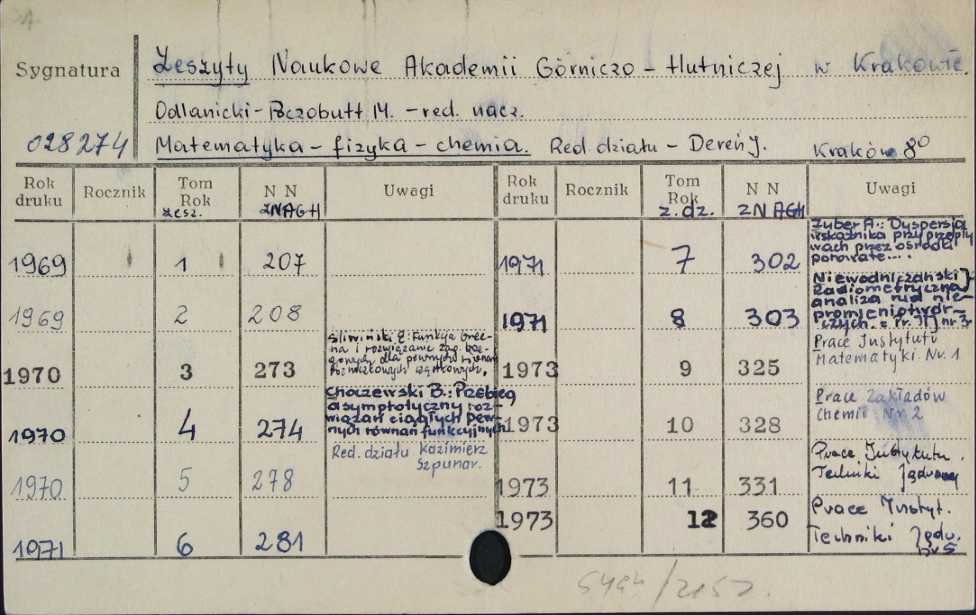 Sygnatura
028274
Zeszyty Naukowe Akademii Górniczo - Hutniczej w Krakowie.
Odlanicki-Poczobutt M. - red. nacz.
Matematyka - fizyka - chemia. Red. działu - Dereń J. Kraków 8°
Rok druku Rocznik Tom Rok zesz. N N ZNAGH Uwagi Rok druku Rocznik Tom Rok z. dz. N N ZNAGH Uwagi
1969 1 207
1969 2 208
1970 3 273 Śliwiński E: Funkcja Greena i rozwiązanie zag. dla pewnych równań różniczkowych cząstkowych.
1970 4 274 Choczewski B.: Przebieg
asymptotyczny roz-
wiązań ciągłych pew-
nych równań funkcyjnych
1970 5 278 Red. działu Kazimierz
Szpunar.
1971 6 281
1971 7 302 Zuber A.: Dyspersja
wskaźnika przy przepły
wach przez ośrodki
porowate....
1971 8 303 Niewodniczański J
Radiometryczna
analiza rud nie-
promieniotwór-
czych.
1973 9 325 Prace Instytutu
Matematyki. Nr. 1
1973 10 328 Prace Zakładów
Chemii Nr. 2
1973 11 331 Prace Instytutu.
Techniki Jądrowej
1973 12 360 Prace Instyt.
Techniki Jądr.
nr 5